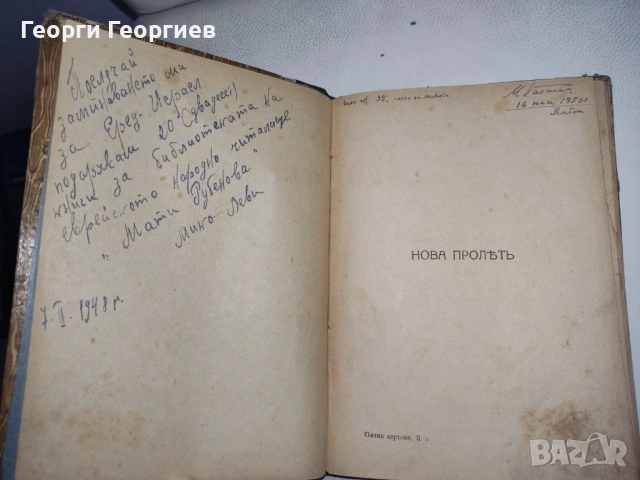 Георги Георгиев
По случай
заминаването ми
за Ерец-Израел
подарявам 20 (двадесет)
книги за библиотеката на
еврейското народно читалище
"Мати Рубенова"
Мико Леви
7.II.1948 г.
16 юли 1950 г.
Ямбол
НОВА ПРОЛѢТЬ
bazar